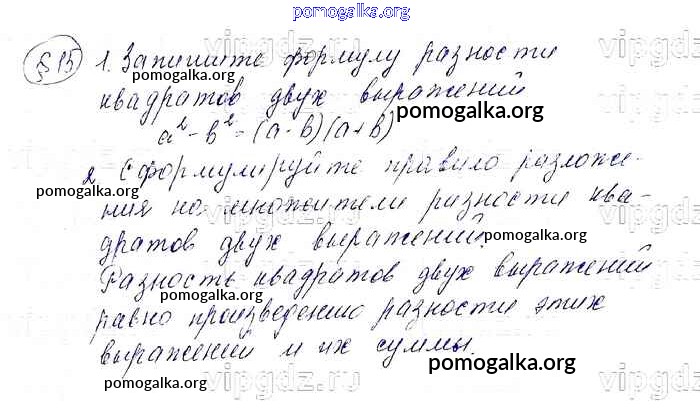 pomogalka.org
§ 15 1. Запишите формулу разности
pomogalka.org
квадратов двух выражений
pomogalka.org
a² - b² = (a - b)(a + b)
2. Сформулируйте правило разложе-
pomogalka.org
ния на множители разности ква-
дратов двух выражений.
pomogalka.org
Разность квадратов двух выражений
pomogalka.org
равно произведению разности этих
pomogalka.org
выражений и их суммы.
pomogalka.org
pomogalka.org
vipgdz.ru